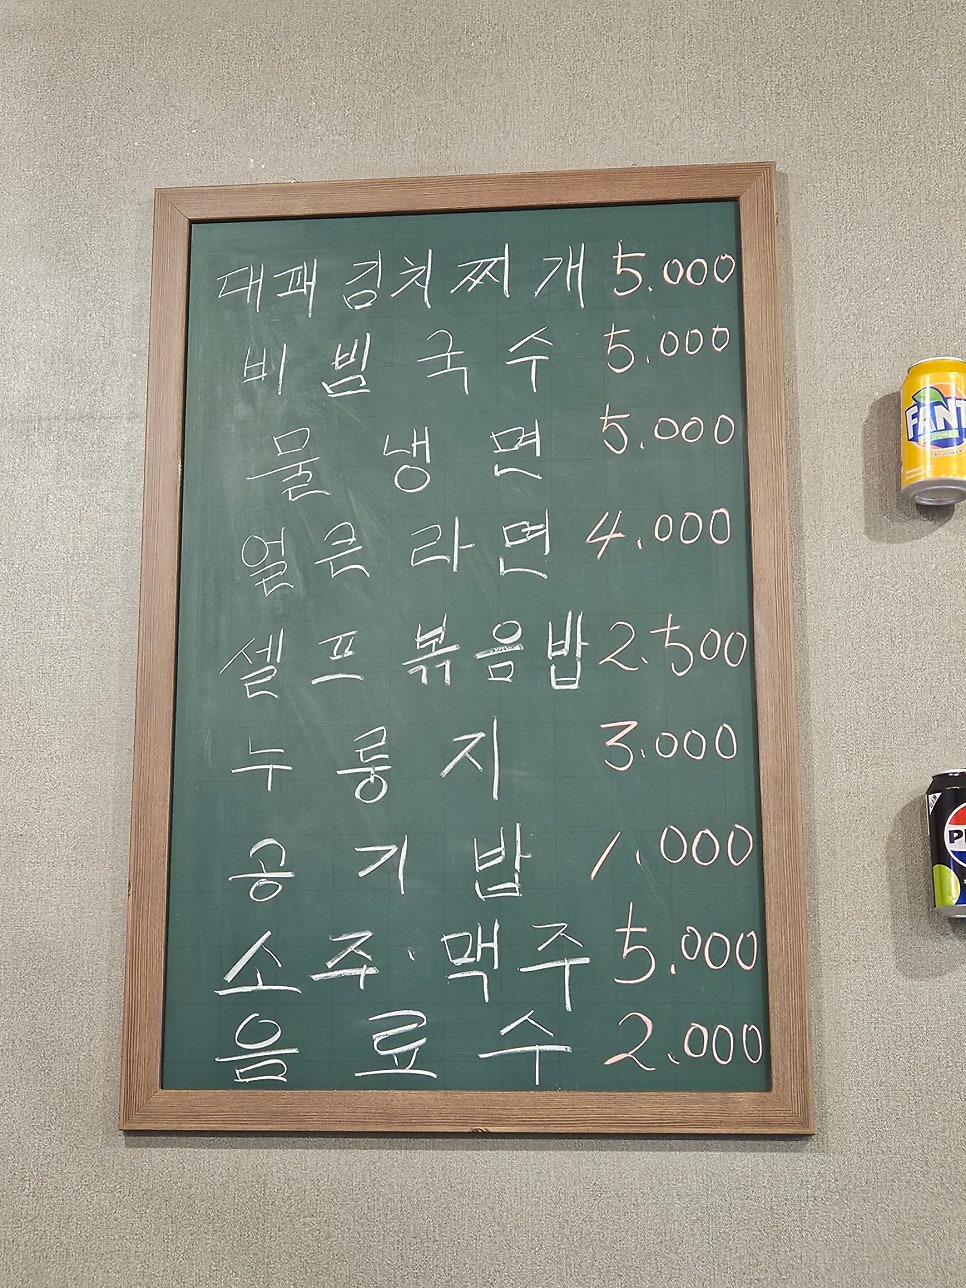 대패김치찌개 5.000
비빔국수 5.000
물냉면 5.000
얼큰라면 4.000
셀프볶음밥 2.500
누룽지 3.000
공기밥 1.000
소주·맥주 5.000
음료수 2.000
FANT
P